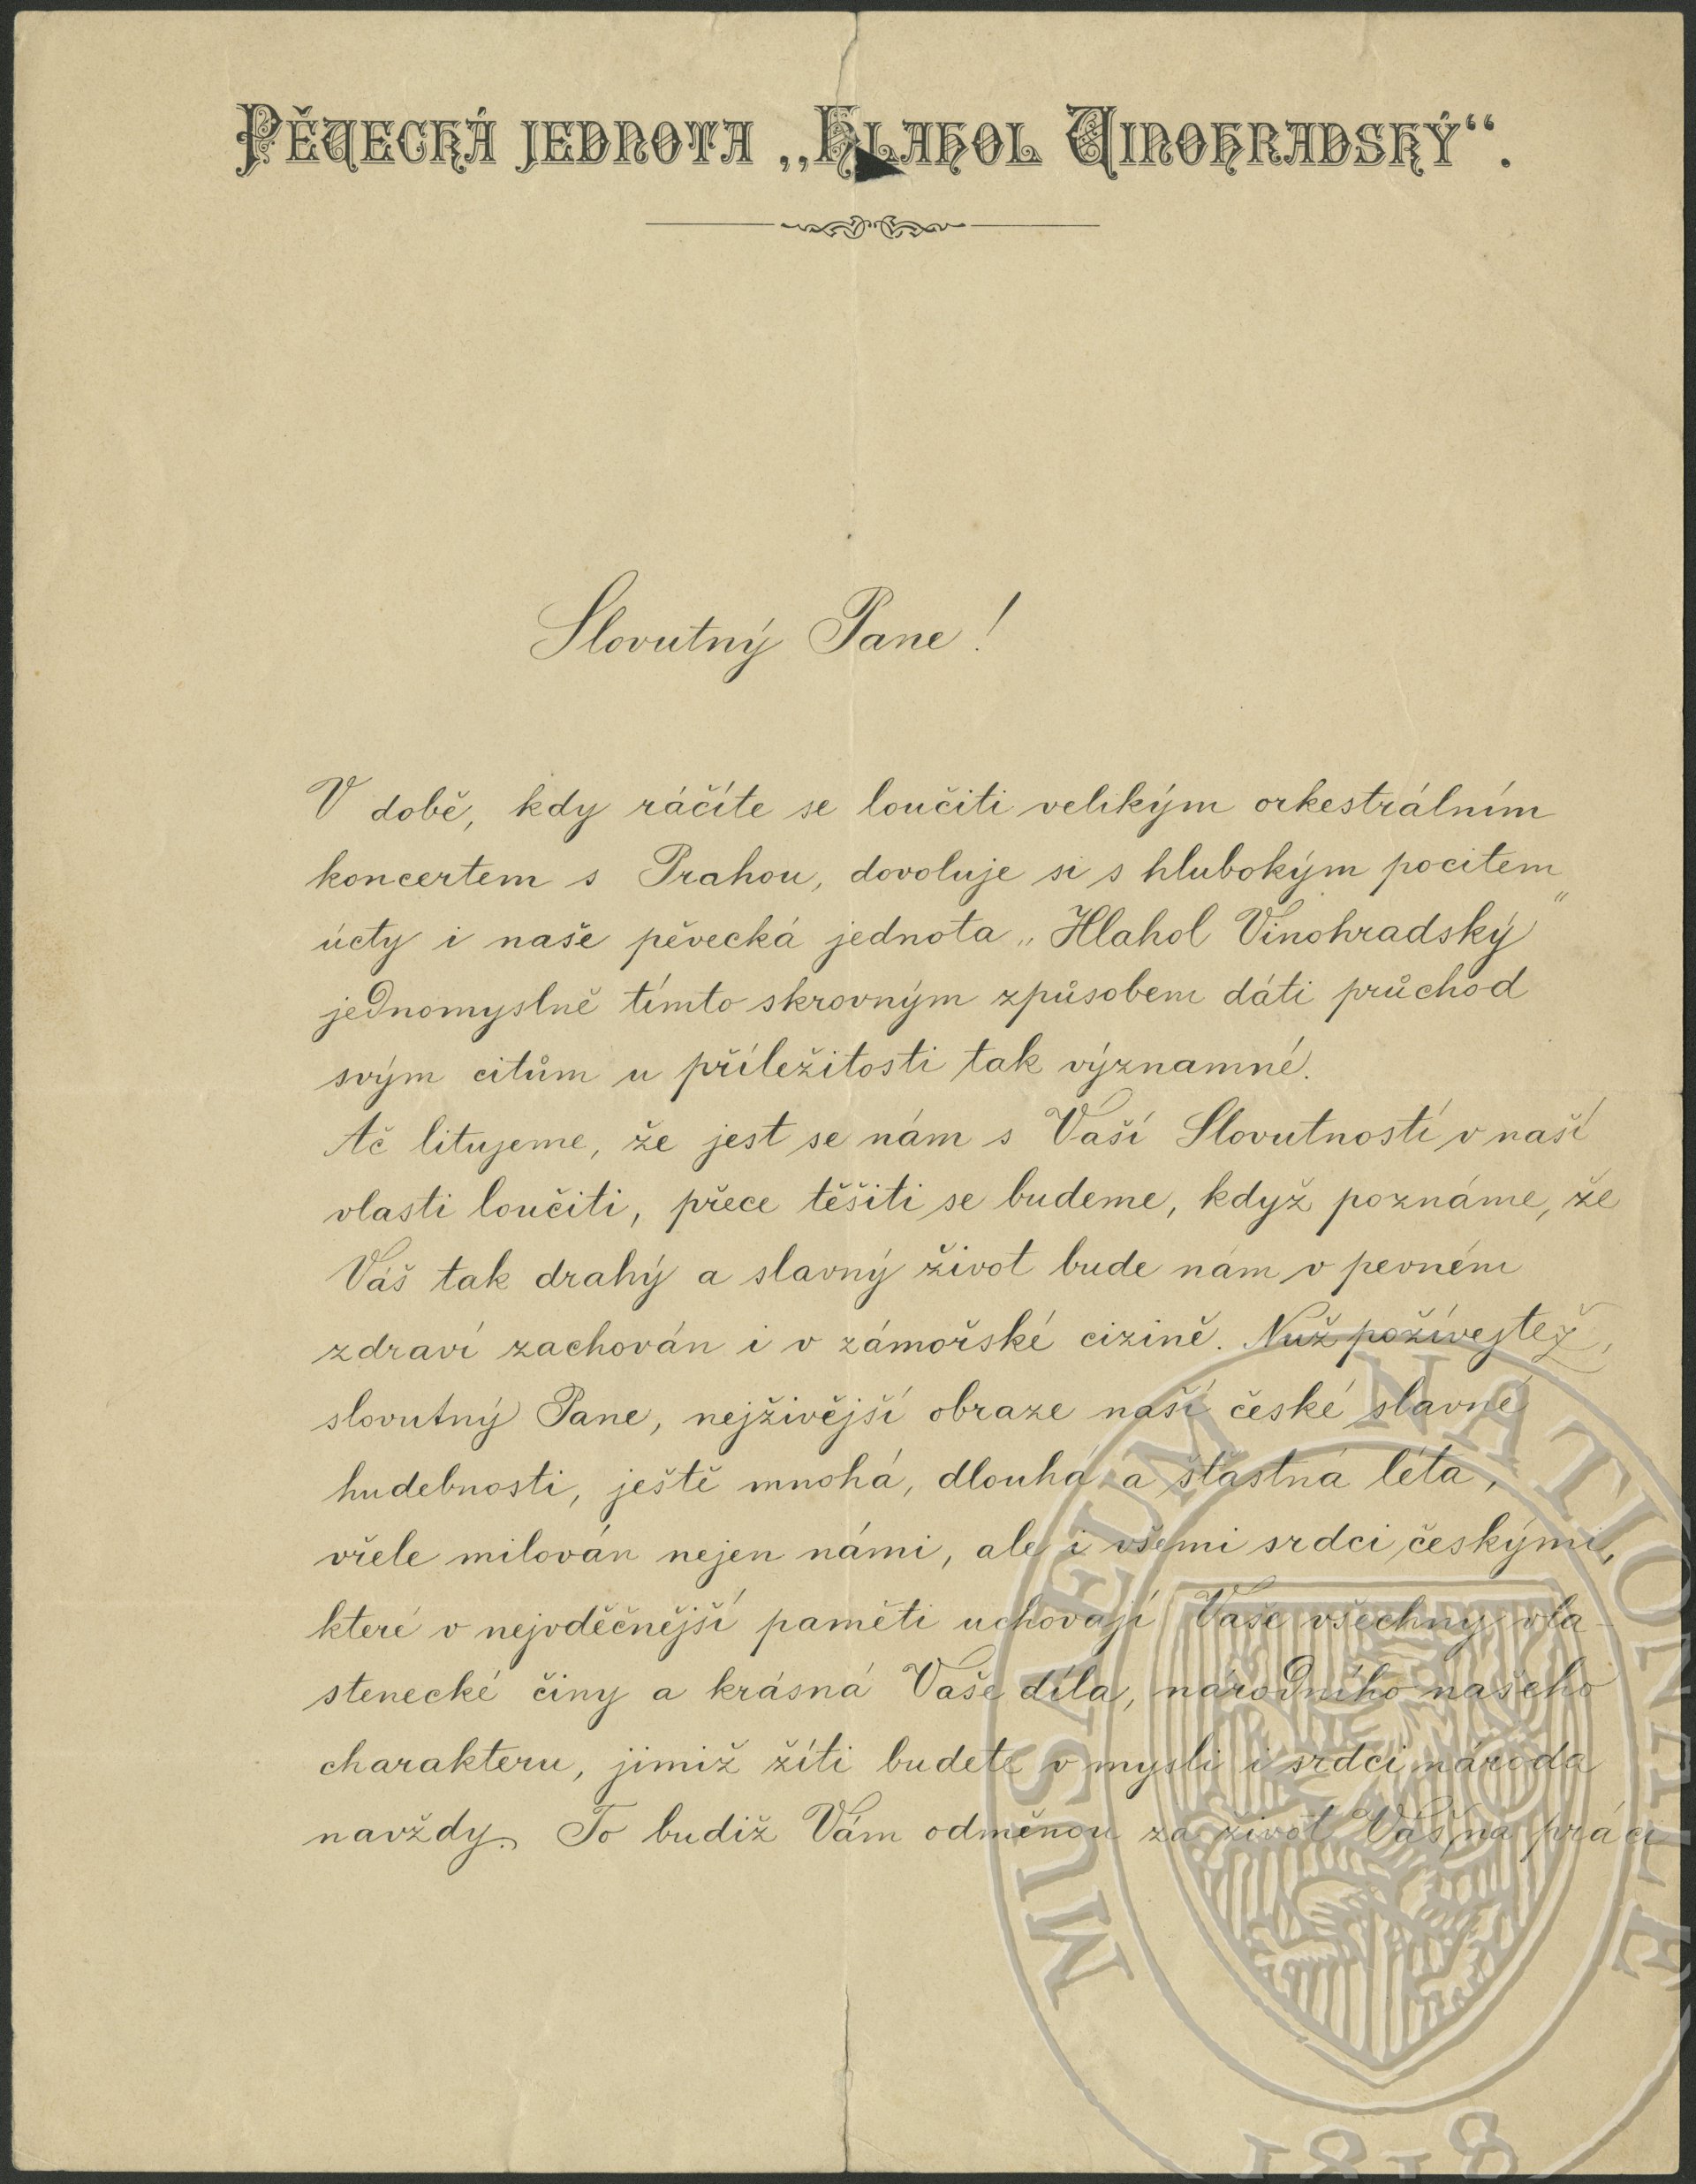 Pěvecká jednota „Hlahol Vinohradský“.
Slovutný Pane!
V době, kdy ráčíte se loučiti velikým orkestrálním
koncertem s Prahou, dovoluje si s hlubokým pocitem
úcty i naše pěvecká jednota „Hlahol Vinohradský"
jednomyslně tímto skrovným způsobem dáti průchod
svým citům u příležitosti tak významné.
Ač litujeme, že jest se nám s Vaší Slovutností v naší
vlasti loučiti, přece těšiti se budeme, když poznáme, že
Váš tak drahý a slavný život bude nám v pevném
zdraví zachován i v zámořské cizině. Nuž požívejtež,
slovutný Pane, nejživější obraze naší české slavné
hudebnosti, ještě mnohá, dlouhá a šťastná léta,
vřele milován nejen námi, ale i všemi srdci českými,
které v nejvděčnější paměti uchovají Vaše všechny vla-
stenecké činy a krásná Vaše díla, národního našeho
charakteru, jimiž žíti budete v mysli i srdci národa
navždy. To budiž Vám odměnou za život Váš na práci
MUSAEUM NATIONALE
1818